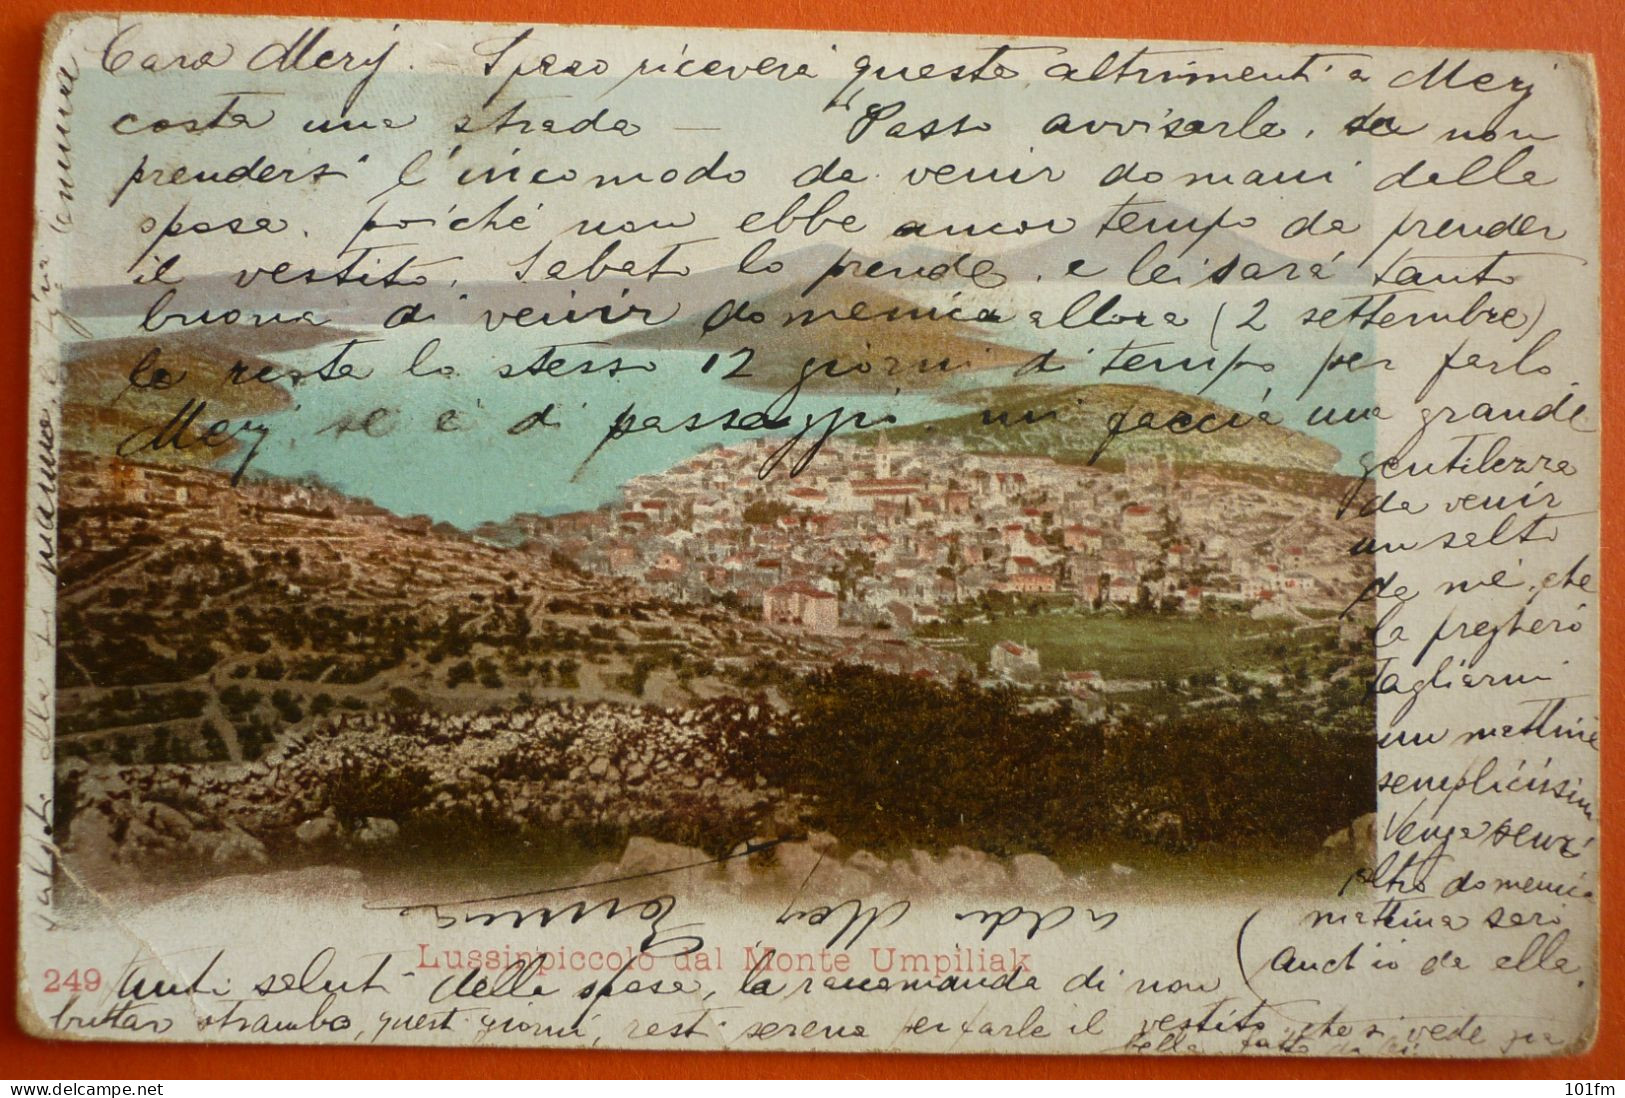 Cara Mery. Spero ricevera questa, altrimenti a Mery
costa una strada — "Posso avvisarla, se non
prendersi l'incomodo da venir domani dalla
sposa, poiché non ebbe ancor tempo da prender
il vestito. Sabato lo prende, e lei sará tanto
buona di venir domenica allora (2 settembre)
le resta lo stesso 12 giorni di tempo per farlo.
Mery, se é di passaggio, mi faccia una grande
gentilezza
da venir
un salto
da me, che
la pregheró
tagliarmi
un mattiné
semplicissimo
Venga senz'
altro domenica
mattina saró
anch'io da ella.
addio Mery Emma
249 Lussinpiccolo dal Monte Umpiliak
Tanti saluti dalla sposa, la racomanda di non
buttar strambo, questi giorni, resti serena per farle il vestito, che si vede già
bella fatto da lei
saluti alla di mamma, e Zia Emma